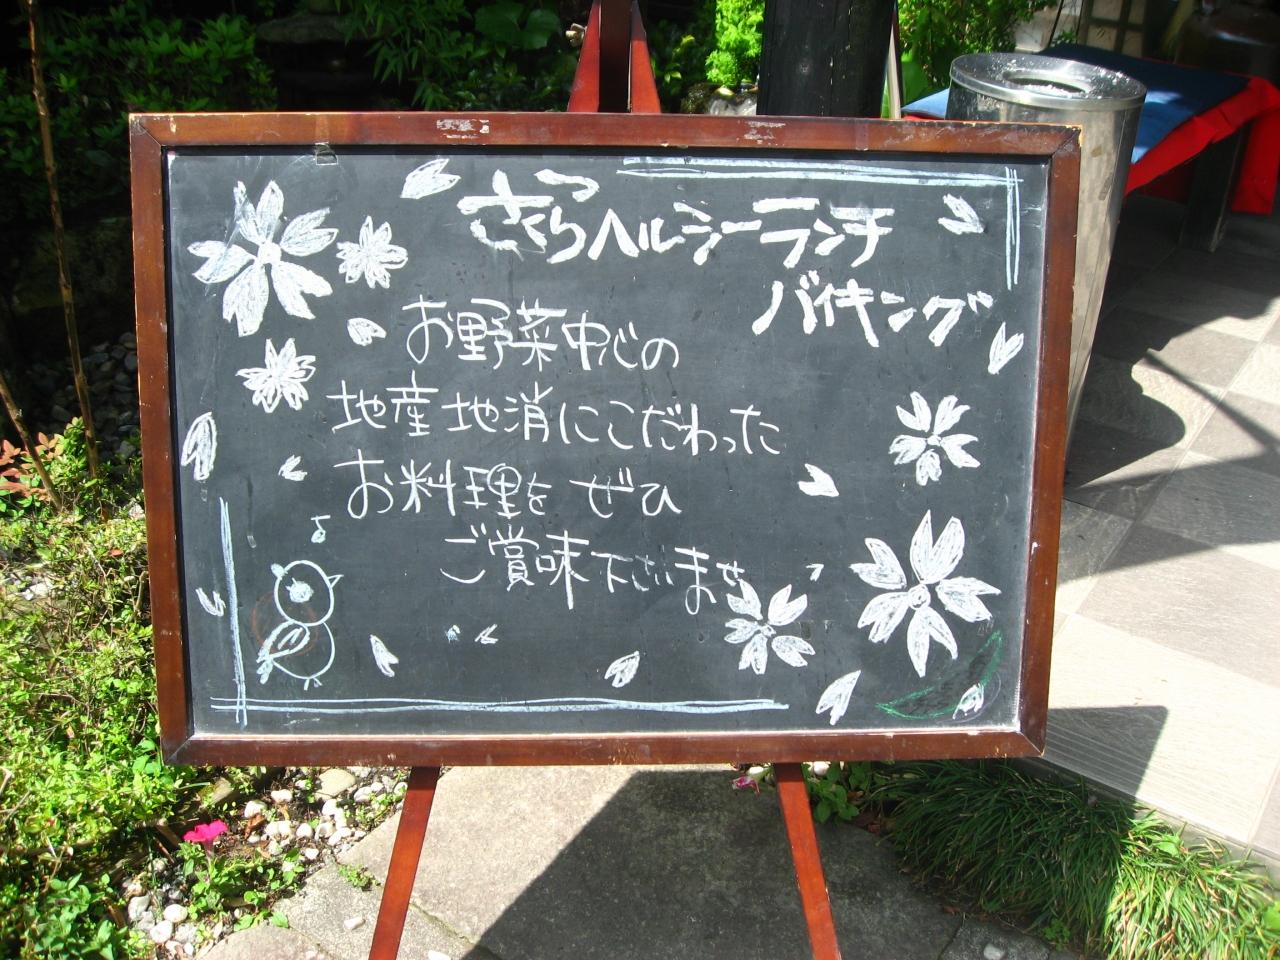 さくらヘルシーランチ
バイキング
お野菜中心の
地産地消にこだわった
お料理を ぜひ
ご賞味下さいませ